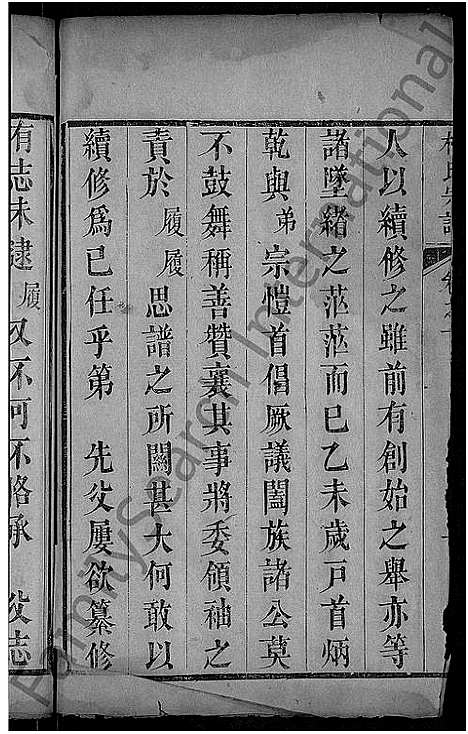 人以續修之雖前有創始之舉亦等
諸墜緒之茫茫而已乙未歲戸首炳
乾與弟宗愷首倡厥議闔族諸公莫
不鼓舞稱善贊襄其事將委領袖之
責於履履思譜之所關甚大何敢以
續修爲己任乎第 先父屢欲纂修
有志未逮履又不可不略承 父志
FamilySearch International